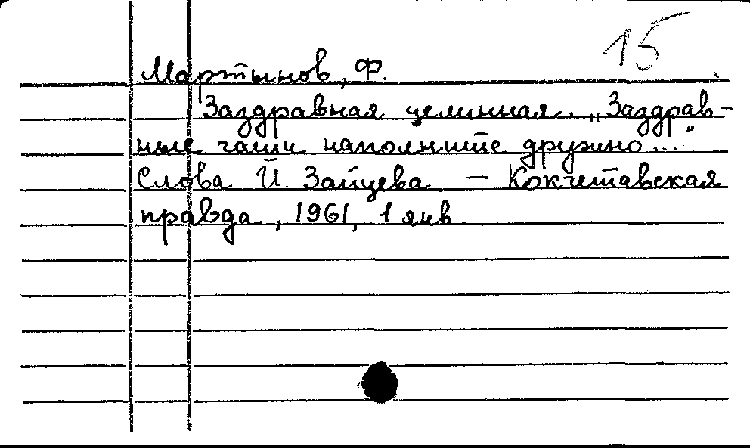 15
Мартынов, Ф.
Заздравная целинная. „Заздрав-
ные чаши наполните дружно..."
Слова Й Зайцева – Кокчетавская
правда, 1961, 1 янв